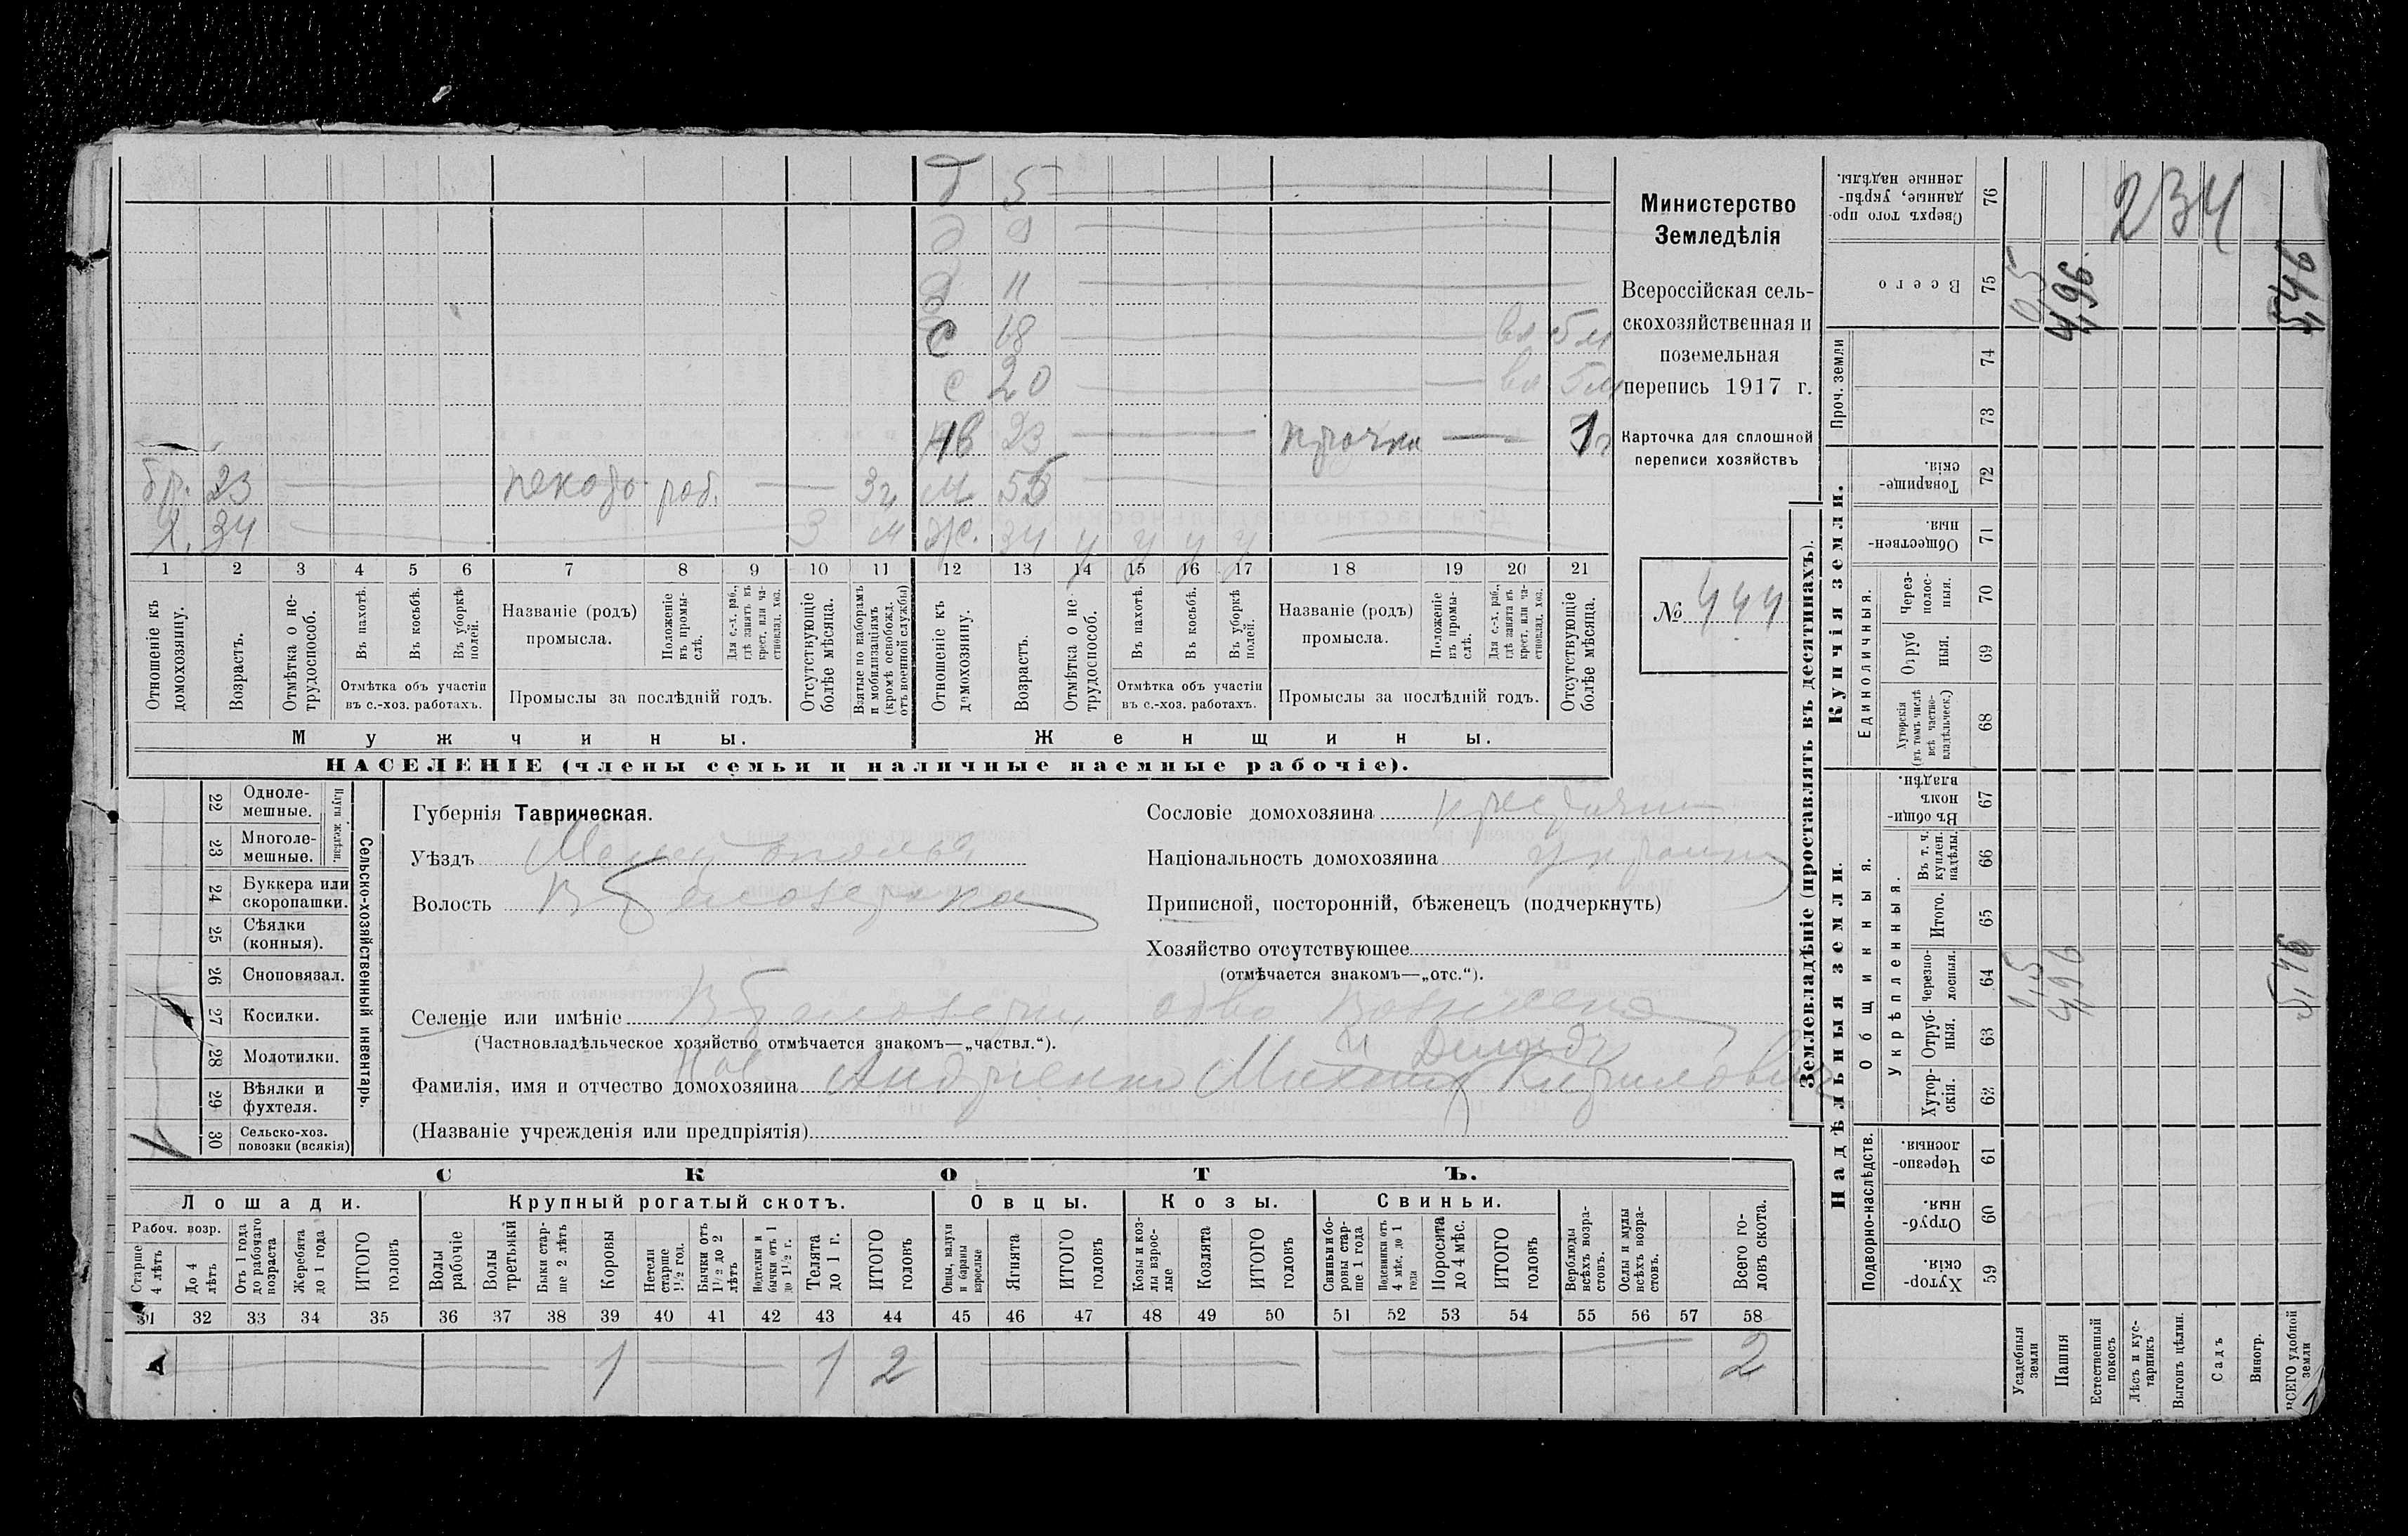 б 5
д 9
д 11
с 18 вл 5 м
с 20 вл 5 м
нв 23 прачка 1 г
бр. 23 раб. 3 г. М 55
Х. 34 3 м ж. 34 у у у у
1 2 3 4 5 6 7 8 9 10 11 12 13 14 15 16 17 18 19 20 21
Отношеніе къ домохозяину.
Возрастъ.
Отмѣтка о не-трудоспособ.
Въ пахотѣ.
Въ косьбѣ.
Въ уборкѣ полей.
Отмѣтка объ участіи
въ с.-хоз. работахъ.
Названіе (родъ)
промысла.
Положеніе въ промы-слѣ.
Для с.-х. раб., гдѣ занятъ въ крест. или ча-стновлад. хоз.
Промыслы за послѣдній годъ.
Отсутствующіе болѣе мѣсяца.
Взятые по наборамъ и мобилизаціямъ (кромѣ освобожд. отъ военной службы)
Отношеніе къ домохозяину.
Возрастъ.
Отмѣтка о не трудоспособ.
Въ пахотѣ.
Въ косьбѣ.
Въ уборкѣ полей.
Отмѣтка объ участіи
въ с.-хоз. работахъ.
Названіе (родъ)
промысла.
Положеніе въ промы-слѣ.
Для с.-х. раб., гдѣ занята въ крест. или ча-стновлад. хоз.
Промыслы за послѣдній годъ.
Отсутствующіе болѣе мѣсяца.
Мужчины.
Женщины.
НАСЕЛЕНІЕ (члены семьи и наличные наемные рабочіе).
Министерство
Земледѣлія
Всероссійская сель-
скохозяйственная и
поземельная
перепись 1917 г.
Карточка для сплошной
переписи хозяйствъ
№ 444
22 Однолемешные.
23 Многолемешные.
Плуги желѣзн.
24 Буккера или скоропашки.
25 Сѣялки (конныя).
26 Сноповязал.
27 Косилки.
28 Молотилки.
29 Вѣялки и фухтеля.
30 Сельско-хоз. повозки (всякія)
Сельско-хозяйственный инвентарь.
Губернія Таврическая.
Уѣздъ
Волость В Белозерка
Селеніе или имѣніе В Белозерка
(Частновладѣльческое хозяйство отмѣчается знакомъ—„частвл.“).
Фамилія, имя и отчество домохозяина Андриенко Кирилович
(Названіе учрежденія или предпріятія)
Сословіе домохозяина
Національность домохозяина
Приписной, посторонній, бѣженецъ (подчеркнуть)
Хозяйство отсутствующее
(отмѣчается знакомъ—„отс.“).
СКОТЪ.
Лошади.
Рабоч. возр.
Старше 4 лѣтъ
До 4 лѣтъ
Отъ 1 года до рабочаго возраста
Жеребята до 1 года
ИТОГО головъ
Крупный рогатый скотъ.
Волы рабочіе
Волы третьяки
Быки стар-ше 2 лѣтъ
Коровы
Нетели старше 1½ год.
Бычки отъ 1½ до 2 лѣтъ
Подтелки и бычки отъ 1 до 1½ г.
Телята до 1 г.
ИТОГО головъ
Овцы.
Овцы, валухи и бараны взрослые
Ягнята
ИТОГО головъ
Козы.
Козы и коз-лы взрос-лые
Козлята
ИТОГО головъ
Свиньи.
Свиньи и бо-ровы стар-ше 1 года
Подсвинки отъ 4 мѣс. до 1 года
Поросята до 4 мѣс.
ИТОГО головъ
Верблюды всѣхъ возра-стовъ.
Ослы и мулы всѣхъ возра-стовъ.
Всего го-ловъ скота.
31 32 33 34 35 36 37 38 39 40 41 42 43 44 45 46 47 48 49 50 51 52 53 54 55 56 57 58
1 1 2 2
Землевладѣніе (проставлять въ десятинахъ).
Надѣльныя земли.
Купчія земли.
Проч. земли
Подворно-наслѣдств.
Общинныя.
Укрѣпленныя.
Единоличныя.
Сверхъ того про-данные, укрѣп-ленные надѣлы. 76
Всего 75
74
73
Товарище-скія. 72
Обществен-ныя. 71
Через-полос-ныя. 70
Отруб ныя. 69
Хуторскія (въ томъ числѣ всѣ частно-владѣльческ.) 68
Въ общи-номъ владѣн. 67
Въ т. ч. куплен. надѣлы. 66
Итого. 65
Черезпо-лосныя. 64
Отруб-ныя. 63
Хутор-скія. 62
Черезпо-лосныя. 61
Отруб-ныя. 60
Хутор-скія. 59
Усадебныя земли
Пашня
Естественный покосъ
Лѣсъ и кус-тарникъ
Выгонъ цѣлин.
Садъ
Виногр.
ВСЕГО удобной земли
234
0,5
4,96
5,46
0,5
4,96
5,46